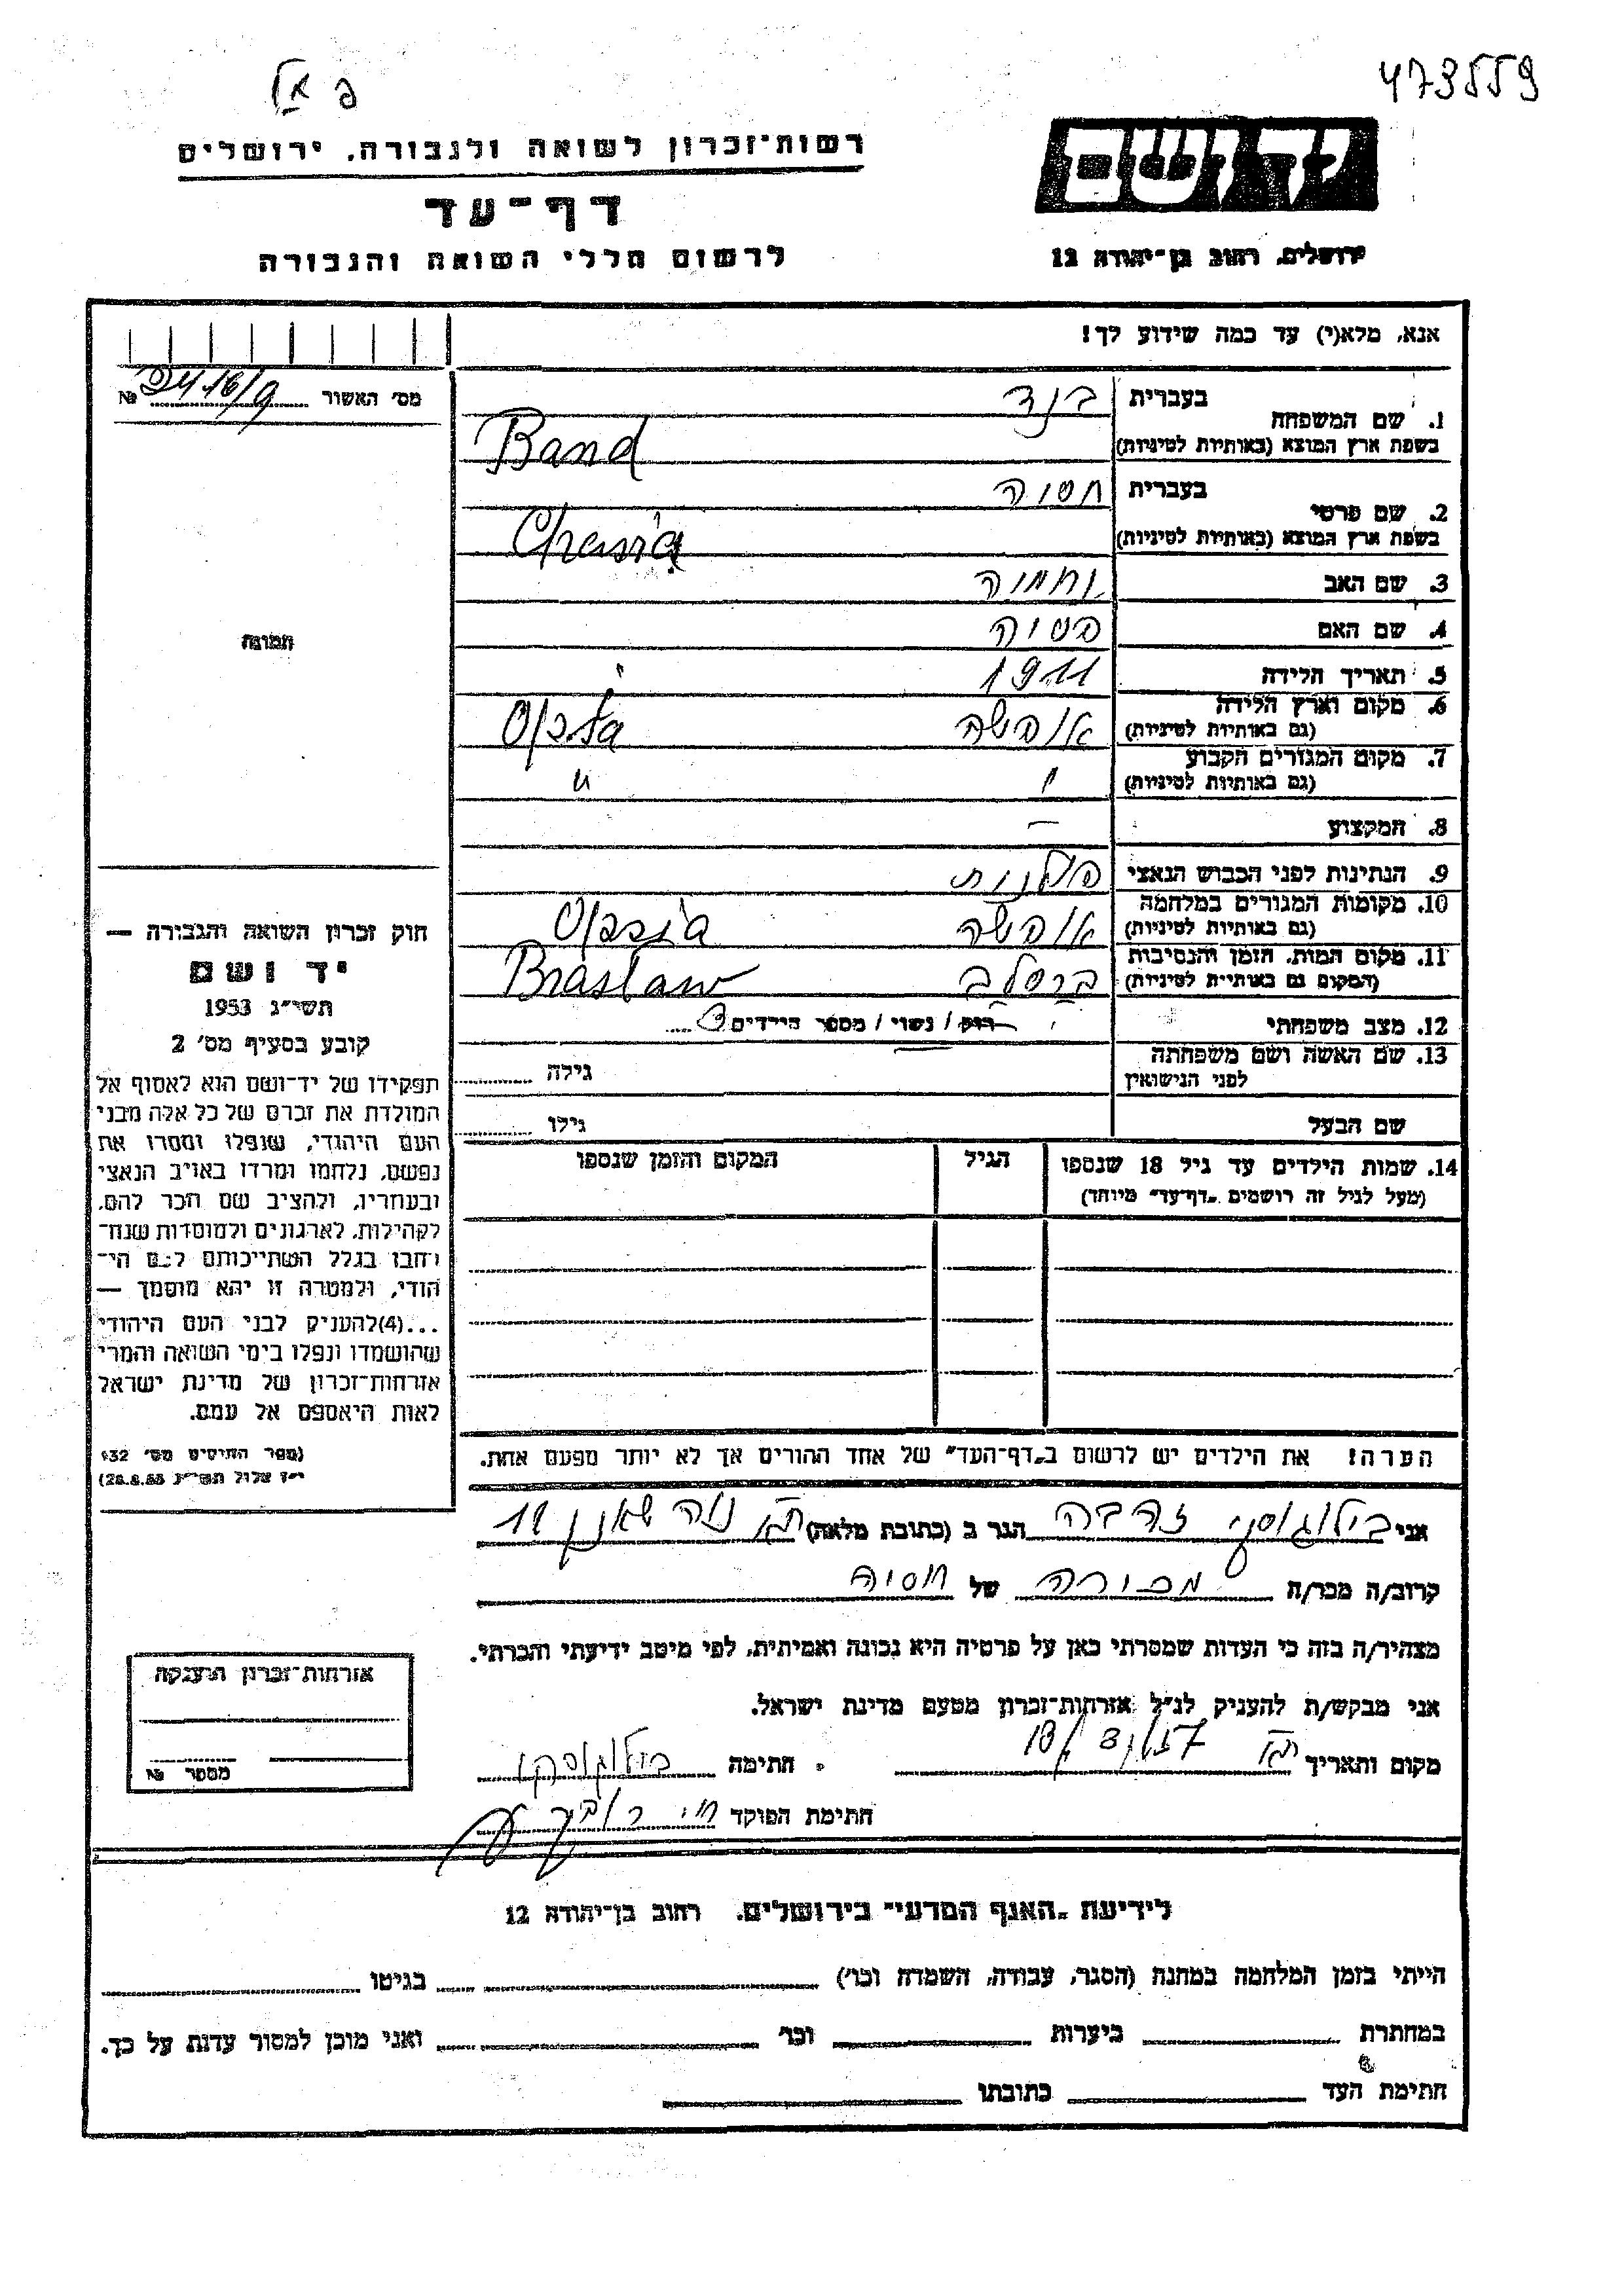 473559
רשות־זכרון לשואה ולגבורה, ירושלים
דף־עד
לרשום חללי השואה והגבורה
יד ושם
ירושלים, רחוב בן־יהודה 12
אנא, מלא(י) עד כמה שידוע לך!
מס׳ האשור № 2416/9
1. שם המשפחה
בעברית בנד
בשפת ארץ המוצא (באותיות לטיניות) Band
2. שם פרטי
בעברית חסיה
בשפת ארץ המוצא (באותיות לטיניות) Chasia
3. שם האב נחמיה
4. שם האם בסיה
5. תאריך הלידה 1911
6. מקום וארץ הלידה
(גם באותיות לטיניות) אופסה Opsa
7. מקום המגורים הקבוע
(גם באותיות לטיניות) " "
8. המקצוע —
9. הנתינות לפני הכבוש הנאצי פולנית
10. מקומות המגורים במלחמה
(גם באותיות לטיניות) אופסה
11. מקום המות, הזמן והנסיבות
(המקום גם באותיות לטיניות) ברסלב Braslaw
12. מצב משפחתי רווק / נשוי / מספר הילדים
13. שם האשה ושם משפחתה
לפני הנישואין
גילה
שם הבעל
גילו
14. שמות הילדים עד גיל 18 שנספו
(מעל לגיל זה רושמים „דף־עד״ מיוחד)
הגיל
המקום והזמן שנספו
תמונה
חוק זכרון השואה והגבורה —
יד ושם
תשי״ג 1953
קובע בסעיף מס׳ 2
תפקידו של יד־ושם הוא לאסוף אל
המולדת את זכרם של כל אלה מבני
העם היהודי, שנפלו ומסרו את
נפשם, נלחמו ומרדו באויב הנאצי
ובעוזריו, ולהציב שם וזכר להם,
לקהילות, לארגונים ולמוסדות שנח־
רבו בגלל השתייכותם לעם הי־
הודי, ולמטרה זו יהא מוסמך —
...(4)להעניק לבני העם היהודי
שהושמדו ונפלו בימי השואה והמרי
אזרחות־זכרון של מדינת ישראל
לאות היאספם אל עמם.
(ספר החוקים מס׳ 132
י״ז אלול תשי״ג 28.8.53)
הערה! את הילדים יש לרשום ב„דף־העד״ של אחד ההורים אך לא יותר מפעם אחת.
אני זהבה הגר ב (כתובת מלאה) נוה שאנן
קרוב/ה מכר/ה מכירה של חסיה
מצהיר/ה בזה כי העדות שמסרתי כאן על פרטיה היא נכונה ואמיתית, לפי מיטב ידיעתי והכרתי.
אני מבקש/ת להעניק לנ״ל אזרחות־זכרון מטעם מדינת ישראל.
מקום ותאריך חתימה
חתימת הפוקד
אזרחות־זכרון הוענקה
מספר №
לידיעת „האגף המדעי״ בירושלים, רחוב בן־יהודה 12
הייתי בזמן המלחמה במחנה (הסגר, עבודה, השמדה וכו׳) בגיטו
במחתרת ביערות וכו׳ ואני מוכן למסור עדות על כך.
חתימת העד כתובתו